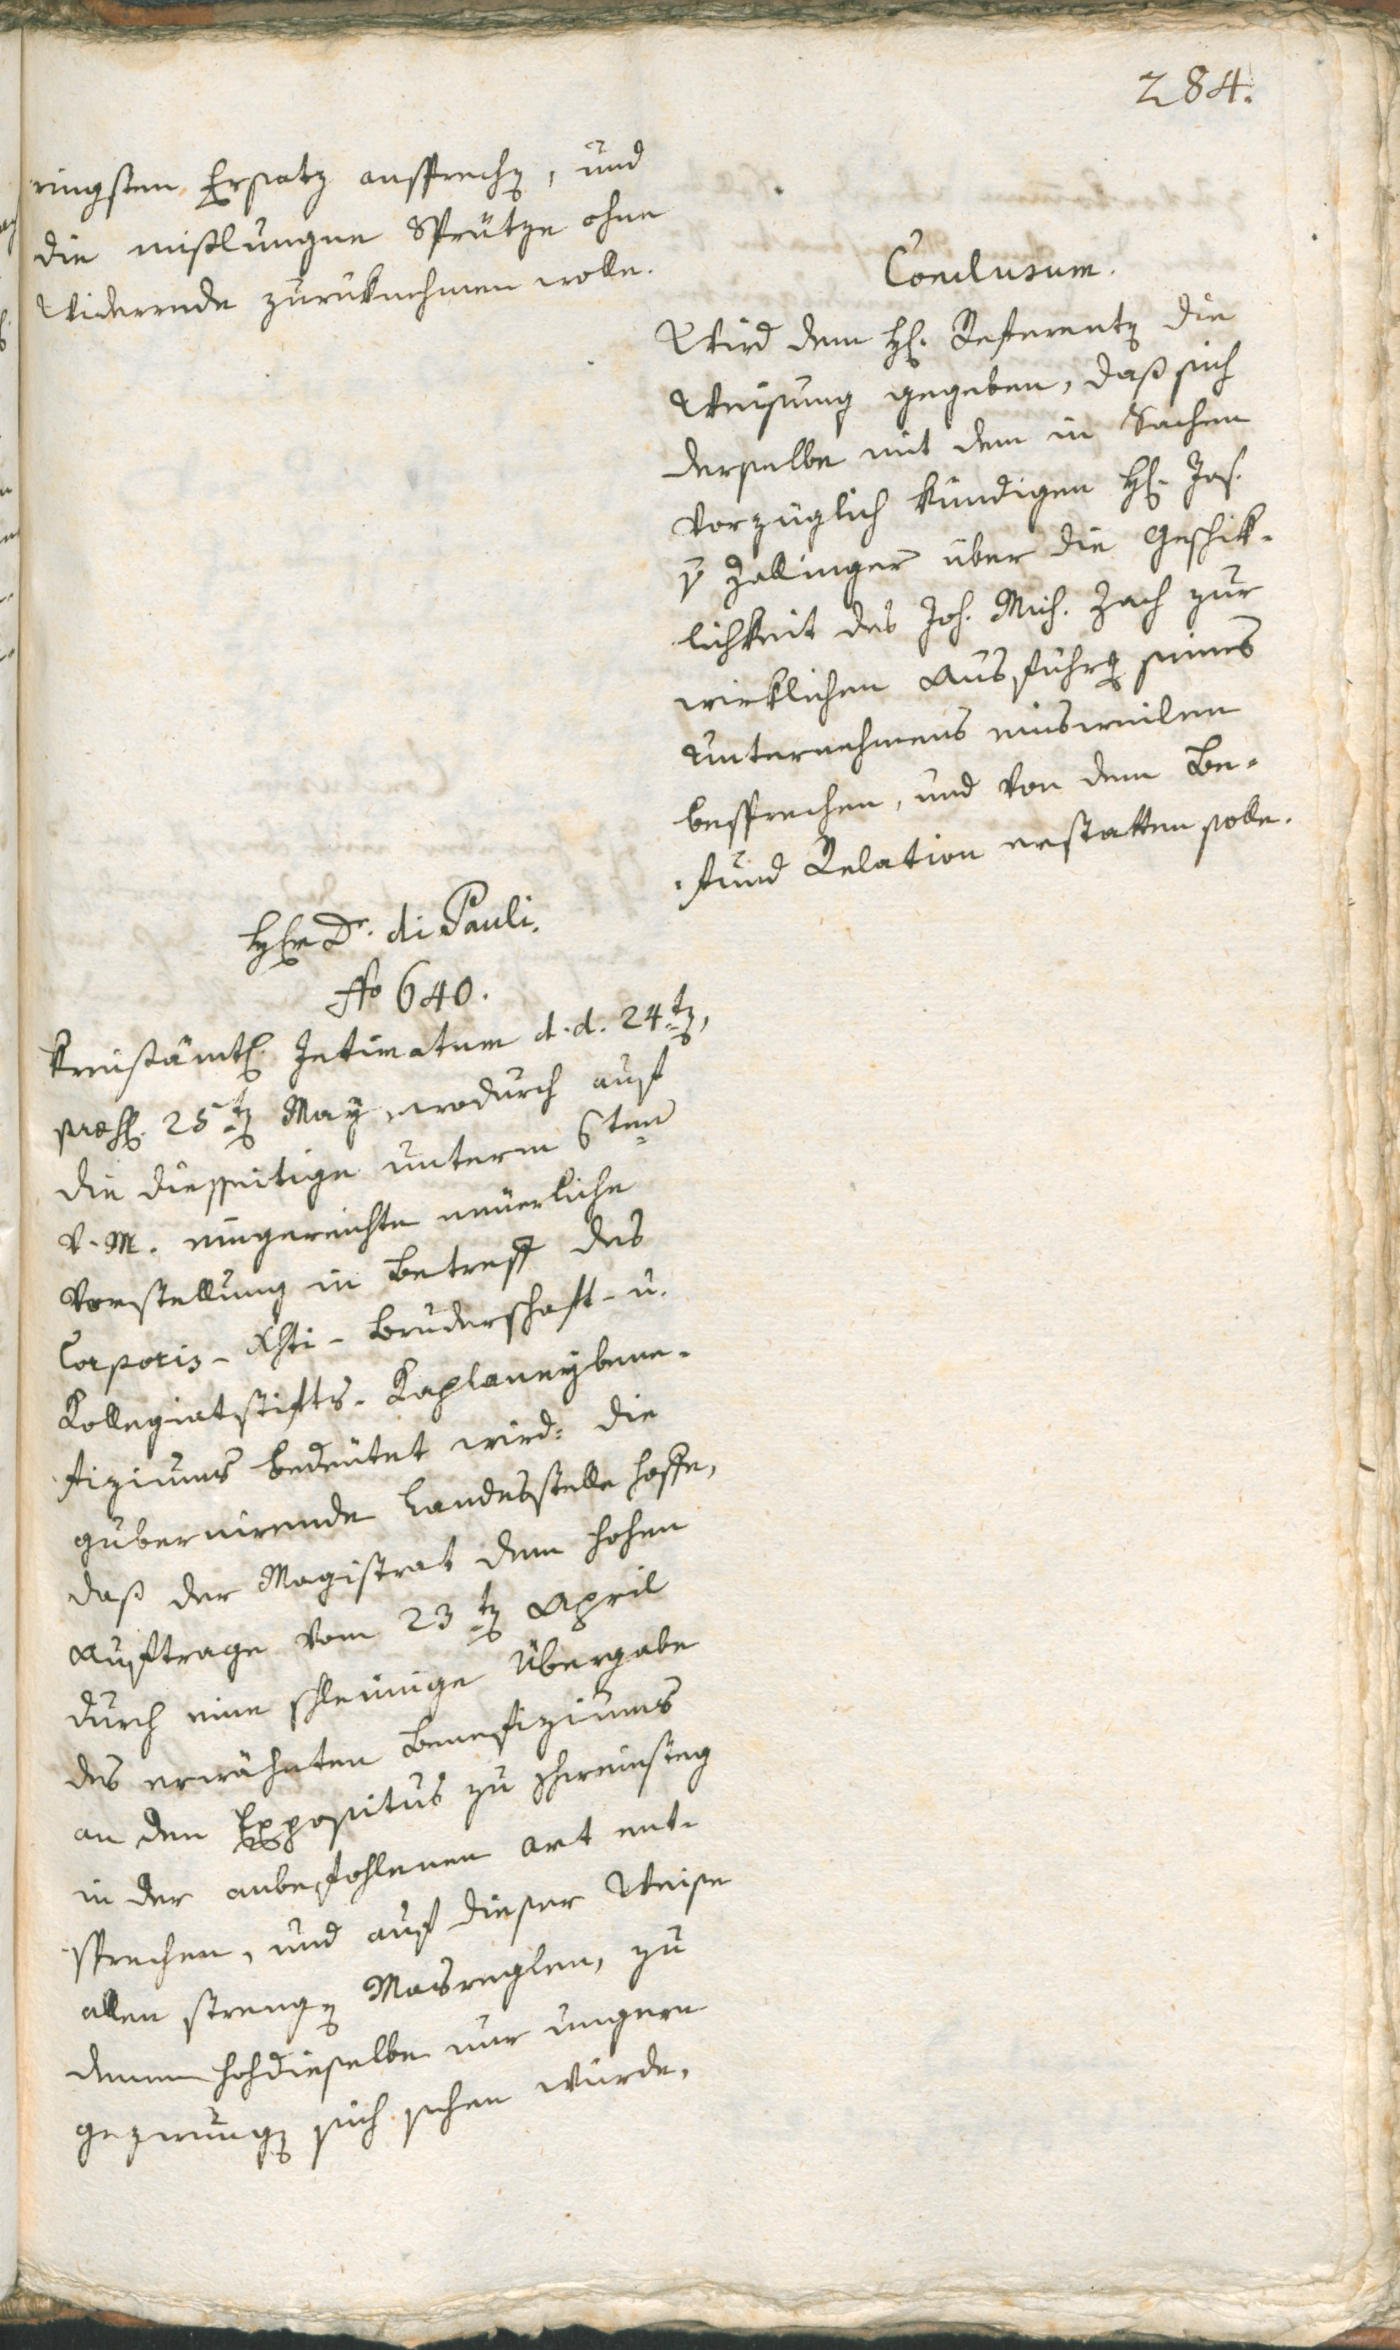 284.
ringsten Ersatz ansprechen, und
die mislungne Sprütze ohne
Widerrede zurüknehmen wolle.
Conclusum.
Wird dem H. Referenten die
Weisung gegeben, daß sich
derselbe mit dem in Sachen
vorzüglich kundigen H. Jos.
v Zallinger über die Geschik-
lichkeit des Joh. Mich. Zach zur
wirklichen Ausführung seines
Unternehmens einsweilen
besprechen, und von dem Be-
fund Relation erstatten solle.
Herr Dr. di Pauli.
No 640.
Kreisämtl. Intimatum d.d. 24ten,
præs. 25ten May, wodurch auf
die diesseitige unterm 6ten
v. M. eingereichte neuerliche
Vorstellung in Betreff des
Corporis-Xsti-Bruderschaft- u.
Kollegiatstifts-Kaplaneybene-
fiziums bedeutet wird: die
gubernirende Landesstelle hoffe,
daß der Magistrat dem hohen
Auftrage vom 23ten April
durch eine schleunige Übergabe
des erwähnten Benefiziums
an den Expositus zu
in der anbefohlenen Art ent-
sprechen, und auf dieser Weise
allen strengen Masreglen, zu
denen hochdieselbe nur ungern
gezwungen sich sehen würde,